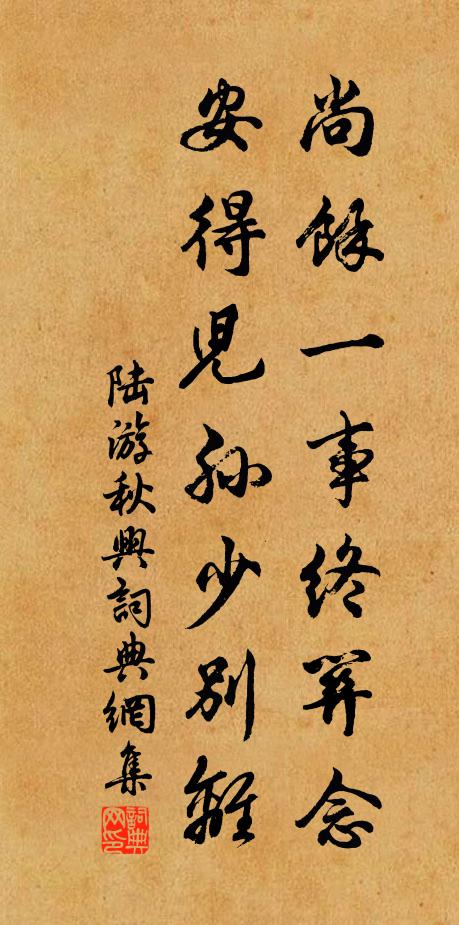 尚餘一事終關念
安得兒孫少別離
陸游秋興詞典網集
詞典网印